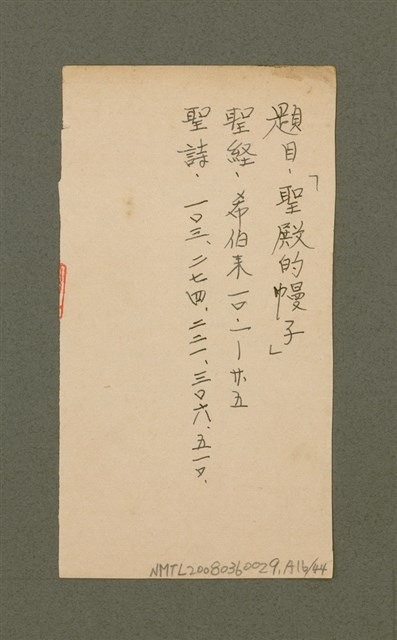 題目、「聖殿的幔子」
聖経、希伯来一〇、一—廿五
聖詩、一〇三、二七四、二二一、三〇六、五一〇、
NMTL20080360029, A16/44